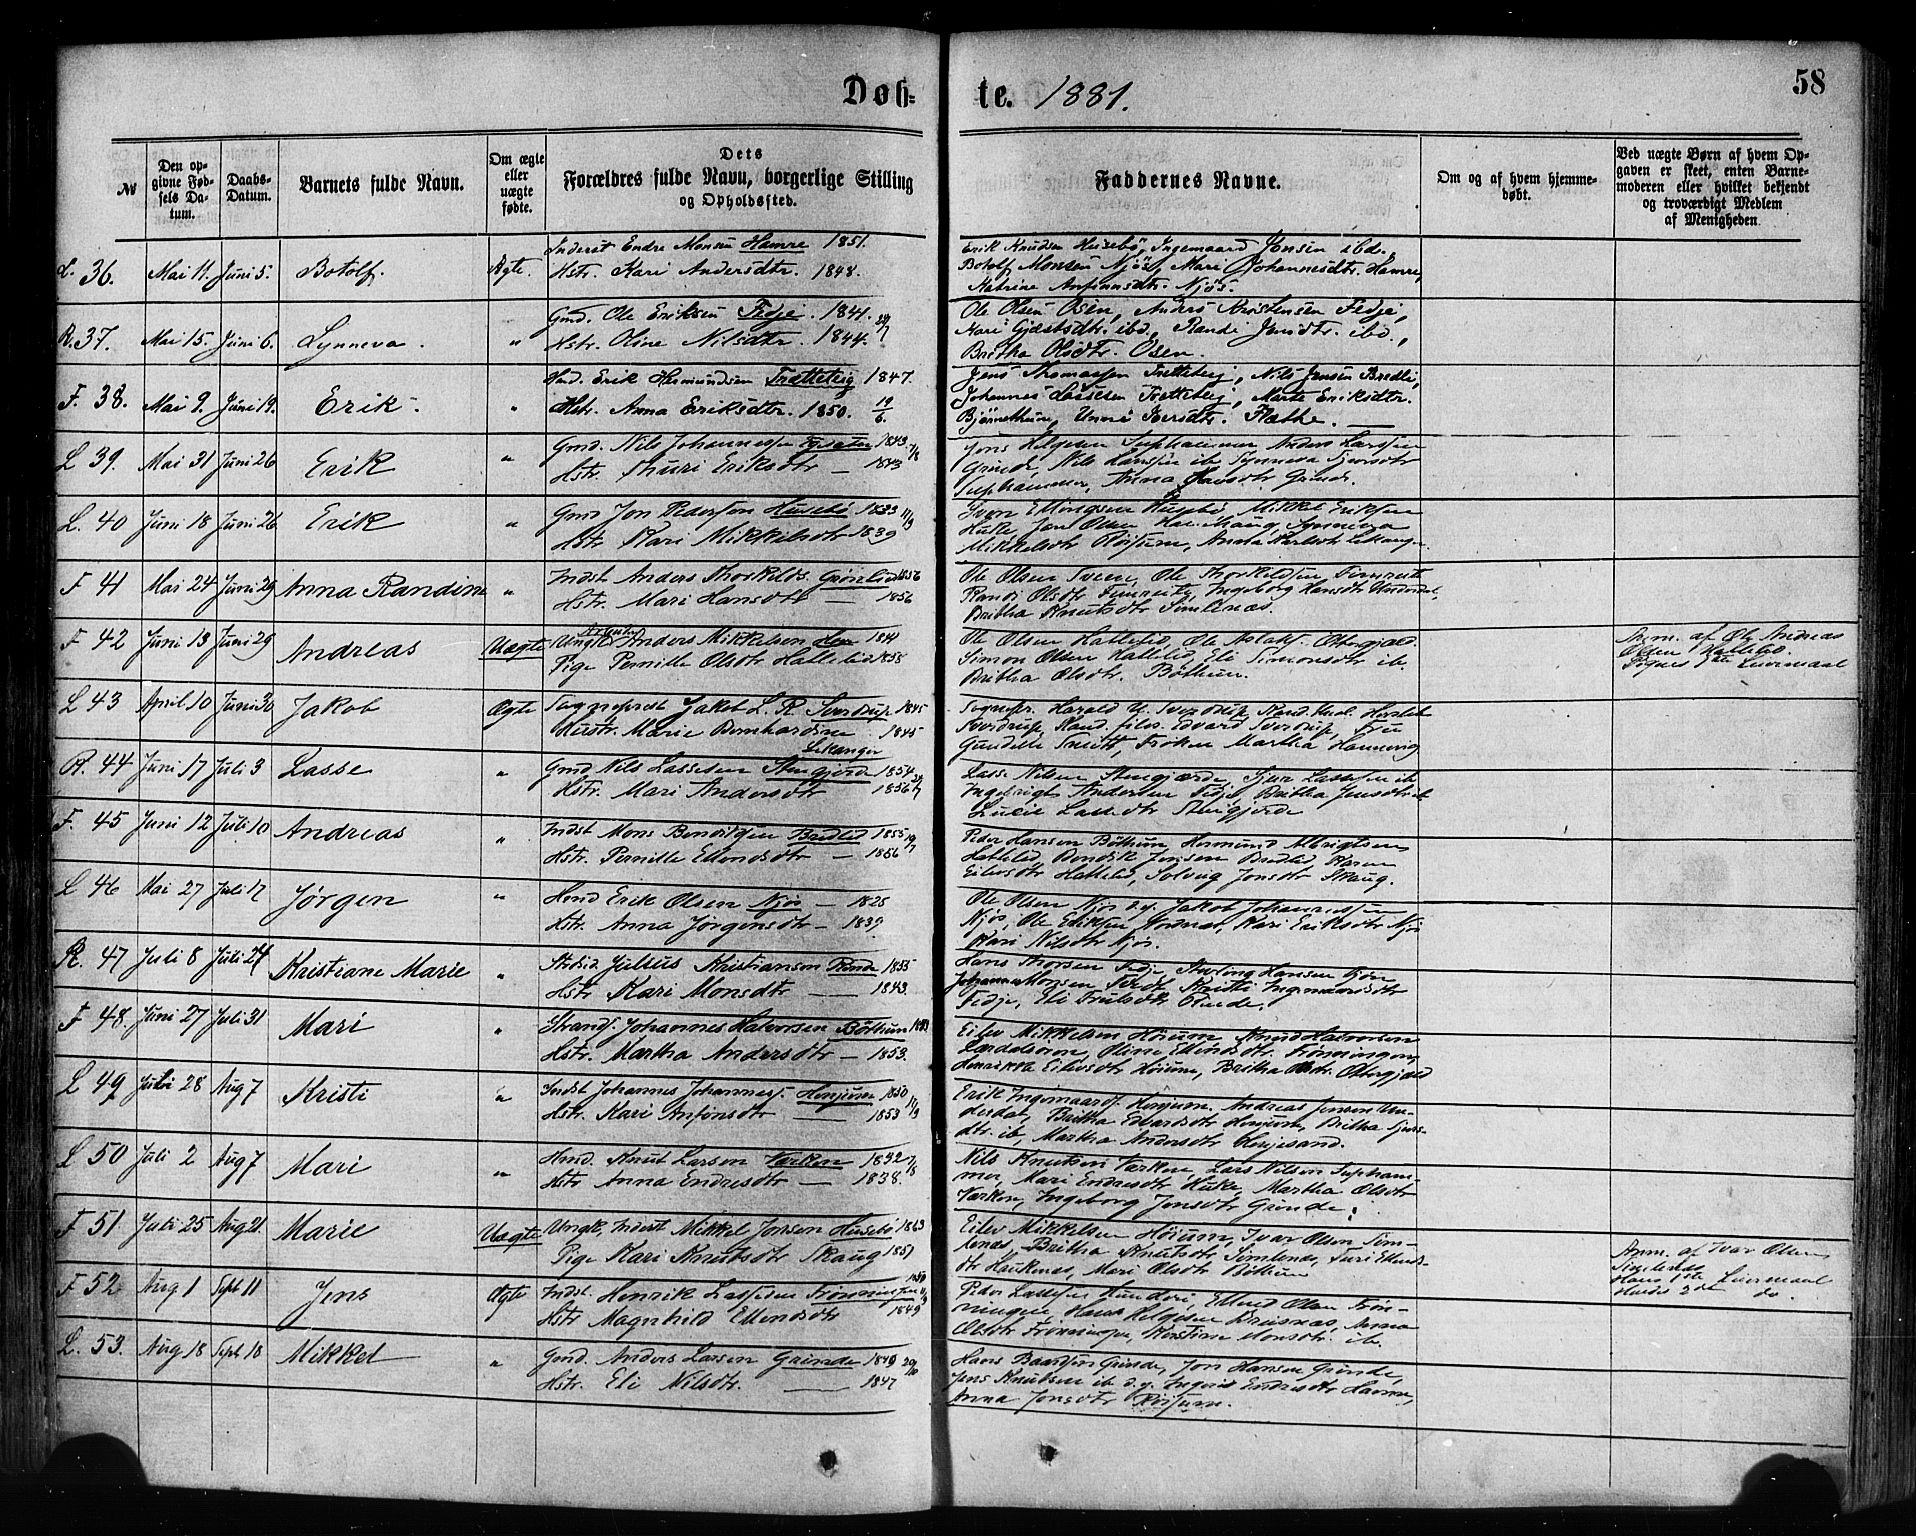 Døb-te. 1881.
58
№
Den op-
givne Fød-
sels Da-
tum.
Daabs-
Datum.
Barnets fulde Navn.
Om ægte
eller
uægte
fødte.
Dets
Forældres fulde Navn, borgerlige Stilling
og Opholdssted.
Faddernes Navne.
Om og af hvem hjemme-
døbt.
Ved uægte Børn af hvem Op-
gaven er skeet, enten Barne-
moderen eller hvilket bekjendt
og troværdigt Medlem
af Menigheden.
L. 36. Mai 11. Juni 5. Botolf. Ægte.
Inderst Endre Monsen Hamre 1851.
Hstr. Kari Andersdtr. 1848.
Erik Knudsen Husebø, Ingemaard Jonsen ibd.,
Botolf Monsen Njøs, Mari Johannesdtr. Hamre,
Katrine Anfinnsdtr. Njøs.
R. 37. Mai 15. Juni 6. Synneva. "
Gmd. Ole Eriksen Fedje. 1841.
Hstr. Oline Nilsdtr. 1844.
Ole Olsen Osen, Anders Kristensen Fedje,
Kari Gjestsdtr. ibd., Randi Jensdtr. ibd.,
Britha Olsdtr. Osen.
F. 38. Mai 9. Juni 19. Erik. "
Hmd. Erik Hermundsen Trætteteig 1847.
Hstr. Anna Eriksdtr. 1850. 19/6
Jens Thomassen Tretteteig, Nils Jensen Bredli,
Johannes Lassesen Tretteteig, Marte Eriksdtr.
Bjørnethun, Unni Sjursdtr. Flathe.
L 39. Mai 31 Juni 26 Erik "
Gmd. Nils Johannessen 1843. 7/8
Hstr. Thuri Eriksdtr — 1843
Jons Helgesen Suphammer Anders Larssen
Grinde, Nils Hanssen ib Synneva Sjursdtr
Suphammer, Anna Hansdtr Grinde.
L. 40 Juni 18 Juni 26 Erik "
Gmd Jon Pederson Husebø 1833 11/9
Hstr. Kari Mikkelsdtr 1839
Iver Ellingsen Husebø, Mikkel Eriksen
Huke, Jon Olsen Synneva
Mikkelsdtr Røisum, Anna Karlsdtr Lekanger.
F 41 Mai 24 Juni 29 Anna Randine "
Indst Anders Thorkilds. Grønlid 1856
Hstr. Mari Hansdtr — 1856
Ole Olsen Tveen, Ole Thorkildsen Fimreite
Randi Olsdtr Fimreite, Ingeborg Hansdtr Underdal,
Britha Knutsdtr Simlenæs.
F 42 Juni 13 Juni 29 Andreas Uægte
Ungk. Anders Mikkelsen 1841
Pige Pernille Olsdtr Hattelid 1858
Ole Olsen Hattelid, Ole Aslaks. Ottergjæld
Simon Olsen Hattelid Eli Simonsdtr ib.
Britha Olsdtr. Bøthun.
Anm. af Ole Andreas
Olsen Hattelid.
Piges 1ste Leiermaal
L 43 April 10 Juni 30 Jakob Ægte
Sogneprest Jakob L. R. Sverdrup 1845
Hustr. Marie Bernhardine 1845
Lekanger
Sognepr. Harald U. Sverdrup, Kand. theol. Hersleb
Sverdrup, Kand. filos. Edvard Sverdrup, Frue
Gundelle Smith, Frøken Martha Hannevig
R. 44 Juni 17 Juli 3 Lasse "
Gmd Nils Lassesen Stengjerde 1854
Hstr. Mari Andersdtr 1856
Lasse Nilsen Stengjærde, Sjur Lassesen ib
Ingebrigt Andersen Fedje Britha Jensdtr ib
Lucie Lassedtr Stengjerde
F. 45 Juni 12 Juli 10 Andreas "
Indst Mons Bendiksen Bredlid 1855 10/7
Hstr. Pernille Ellendsdtr — 1856
Peder Hansen Bøthun, Hermund Albrigtsen
Hattelid, Bendik Jensen Bredlid, Karen
Eilevsdtr Hattelid, Solvig Jonsdtr Skaug.
L 46 Mai 27 Juli 17 Jørgen "
Hmd Erik Olsen Njøs — 1825
Hstr. Anna Jørgensdtr — 1839
Ole Olsen Njøs d.y. Jakob Johannessen
Njøs, Ole Eriksen Nordnæs, Kari Eriksdtr Njøs
Kari Nilsdtr Njøs.
R. 47 Juli 8 Juli 24 Kristiane Marie "
Strdsid. Julius Kristiansen Rinde 1855
Hstr Kari Monsdtr — 1843.
Hans Thorsen Fedje, Sturling Hansen
Johannes Monsen Kristi Ingemaardsdtr
Fedje, Eli Trulsdtr Rinde.
F 48. Juni 27 Juli 31 Mari "
Strands. Johannes Halvorsen Bøthun
Hstr. Martha Andersdtr — 1853.
Eilev Mikkelsen Hørum, Knud Halvorsen
Lærdalsøren, Oline Ellendsdtr. Frønningen,
Henrikka Eilevsdtr Hørum, Britha Olsdtr. Ottergjæld
L 49 Juli 28 Aug 7 Kristi "
Indst Johannes Johannes. Henjum 1850 11/9
Hstr. Kari Anfinsdtr — 1853
Erik Ingomaards. Henjum. Andreas Jensen Un-
derdal, Britha Edvardsdtr Henjum, Britha Sjurs-
dtr. ib, Martha Andersdtr Henjesand.
L 50 Juli 2 Aug 7 Mari "
Hmd. Knut Larsen Varken 1832 7/8
Hstr Anna Endresdtr — 1838.
Nils Knutsen Varken, Lars Nilsen Supham-
mer, Mari Endresdtr Huke, Martha Olsdtr
Varken, Ingeborg Jonsdtr Grinde.
F 51 Juli 25 Aug 21. Marie Uægte
Ungk, Inderst Mikkel Jonsen Husebø 1863
Pige Kari Knutsdtr Skaug 1851
Eilev Mikkelsen Hørum, Ivar Olsen Sim-
lenæs, Britha Knutsdtr Simlenæs, Turi Ellends-
dtr Haukenæs, Mari Olsdtr Bøthun
Anm. af Ivar Olsen
Simlenæs
Hans 1ste Leiermaal
Hendes 2det do.
F 52 Aug 1 Sept 11 Jens Ægte
Indst. Henrik Lassesen Frønningen 1850 11/9
Hstr Magnhild Ellendsdtr 1849
Peder Lassesen Hunderi, Ellend Olsen Frøn-
ningen Hans Helgesen Drusnæs, Anna
Olsdtr Frønningen, Kirstine Monsdtr. ib.
L. 53. Aug 18 Sept. 18 Mikkel "
Gmd. Anders Larsen Grinde 1849 29/10
Hstr. Eli Nilsdtr. — 1847
Hans Baardsen Grinde, Jon Hansen Grinde,
Jens Knutsen ib d.y. Ingrid Endresdtr Hamre,
Anna Jonsdtr Røisum.